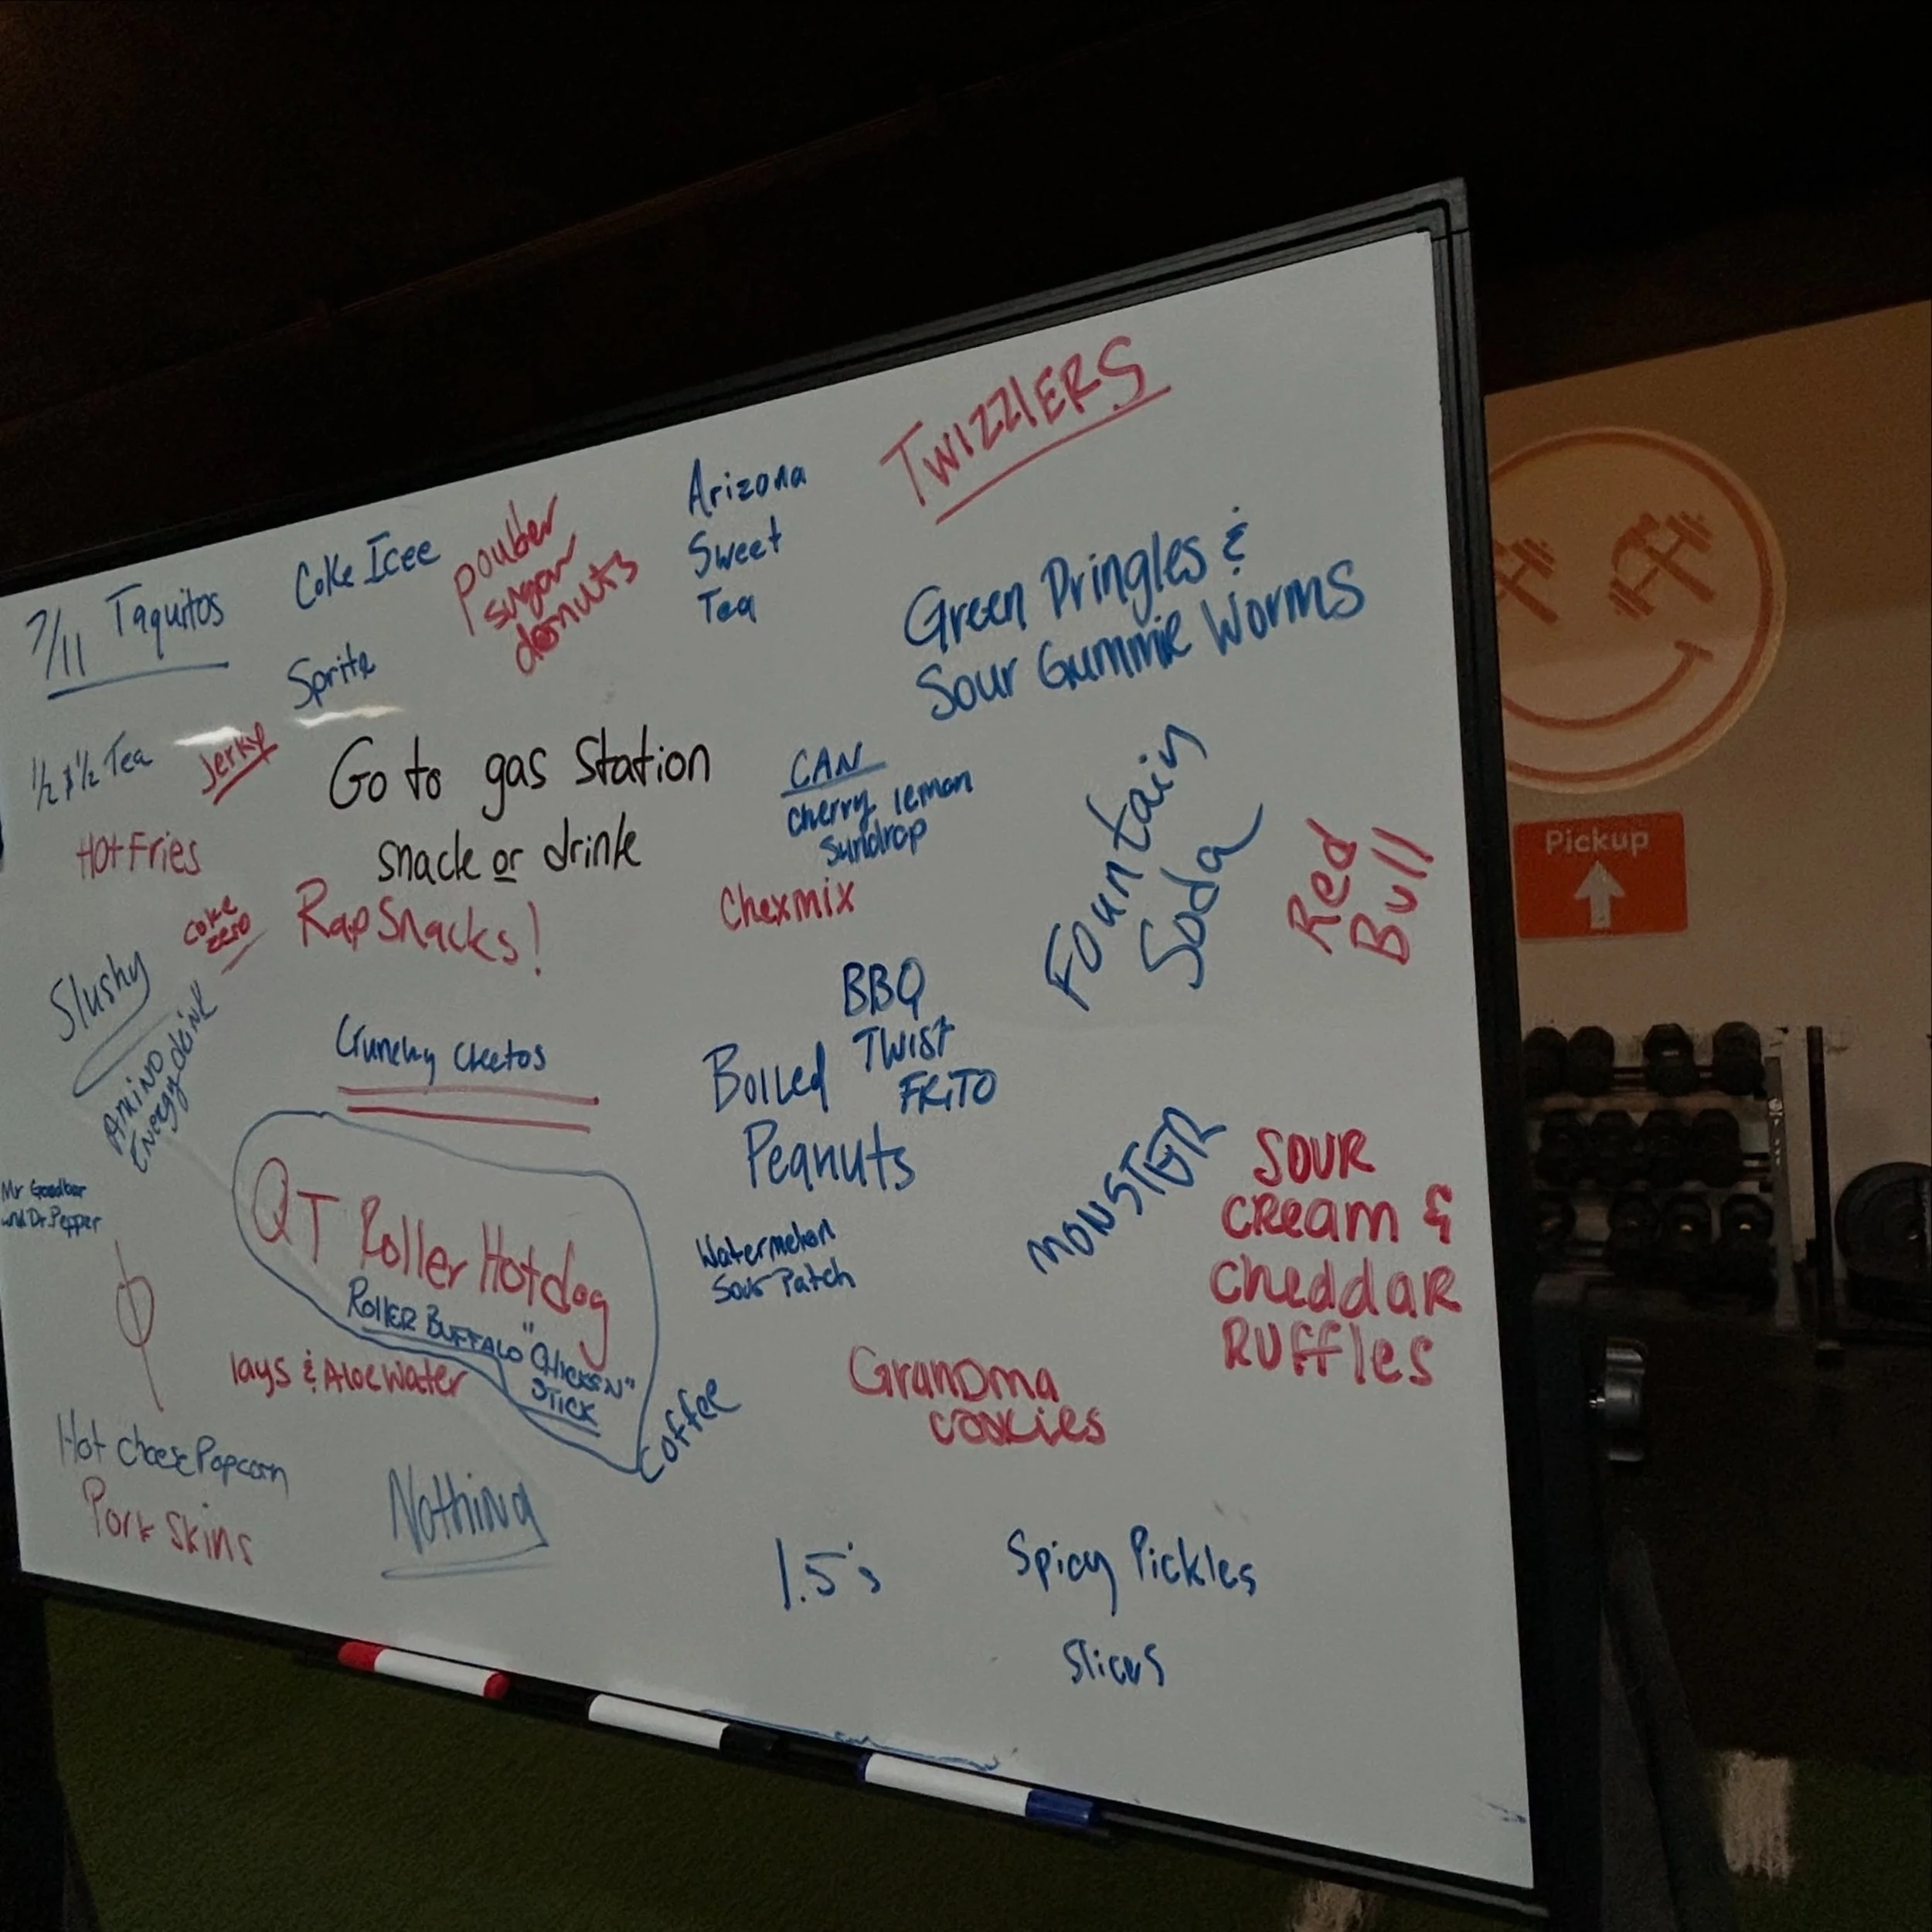 TWIZZLERS
Arizona
Sweet
Tea
Coke Icee
Pouder
sugar
donuts
7/11 Taquitos
Sprite
Green Pringles &
Sour Gummie Worms
1/2 & 1/2 Tea
Jerky
Go to gas station
snack or drink
CAN
cherry lemon
sundrop
Fountain
Soda
Red
Bull
Pickup
Hot Fries
Coke
zero
Rap Snacks!
Chexmix
Slushy
Amino
Energy drink
Crunchy Cheetos
BBQ
TWIST
FRITO
Boiled
Peanuts
MONSTER
SOUR
CReam &
Cheddar
Ruffles
Mr Goodbar
and Dr. Pepper
QT Roller Hotdog
ROLLER BUFFALO "CHICKEN"
STICK
Watermelon
Sour Patch
lays & Aloe Water
Coffee
GranDma
cookies
Hot Cheese Popcorn
Pork Skins
Nothing
1.5's
Spicy Pickles
Slices